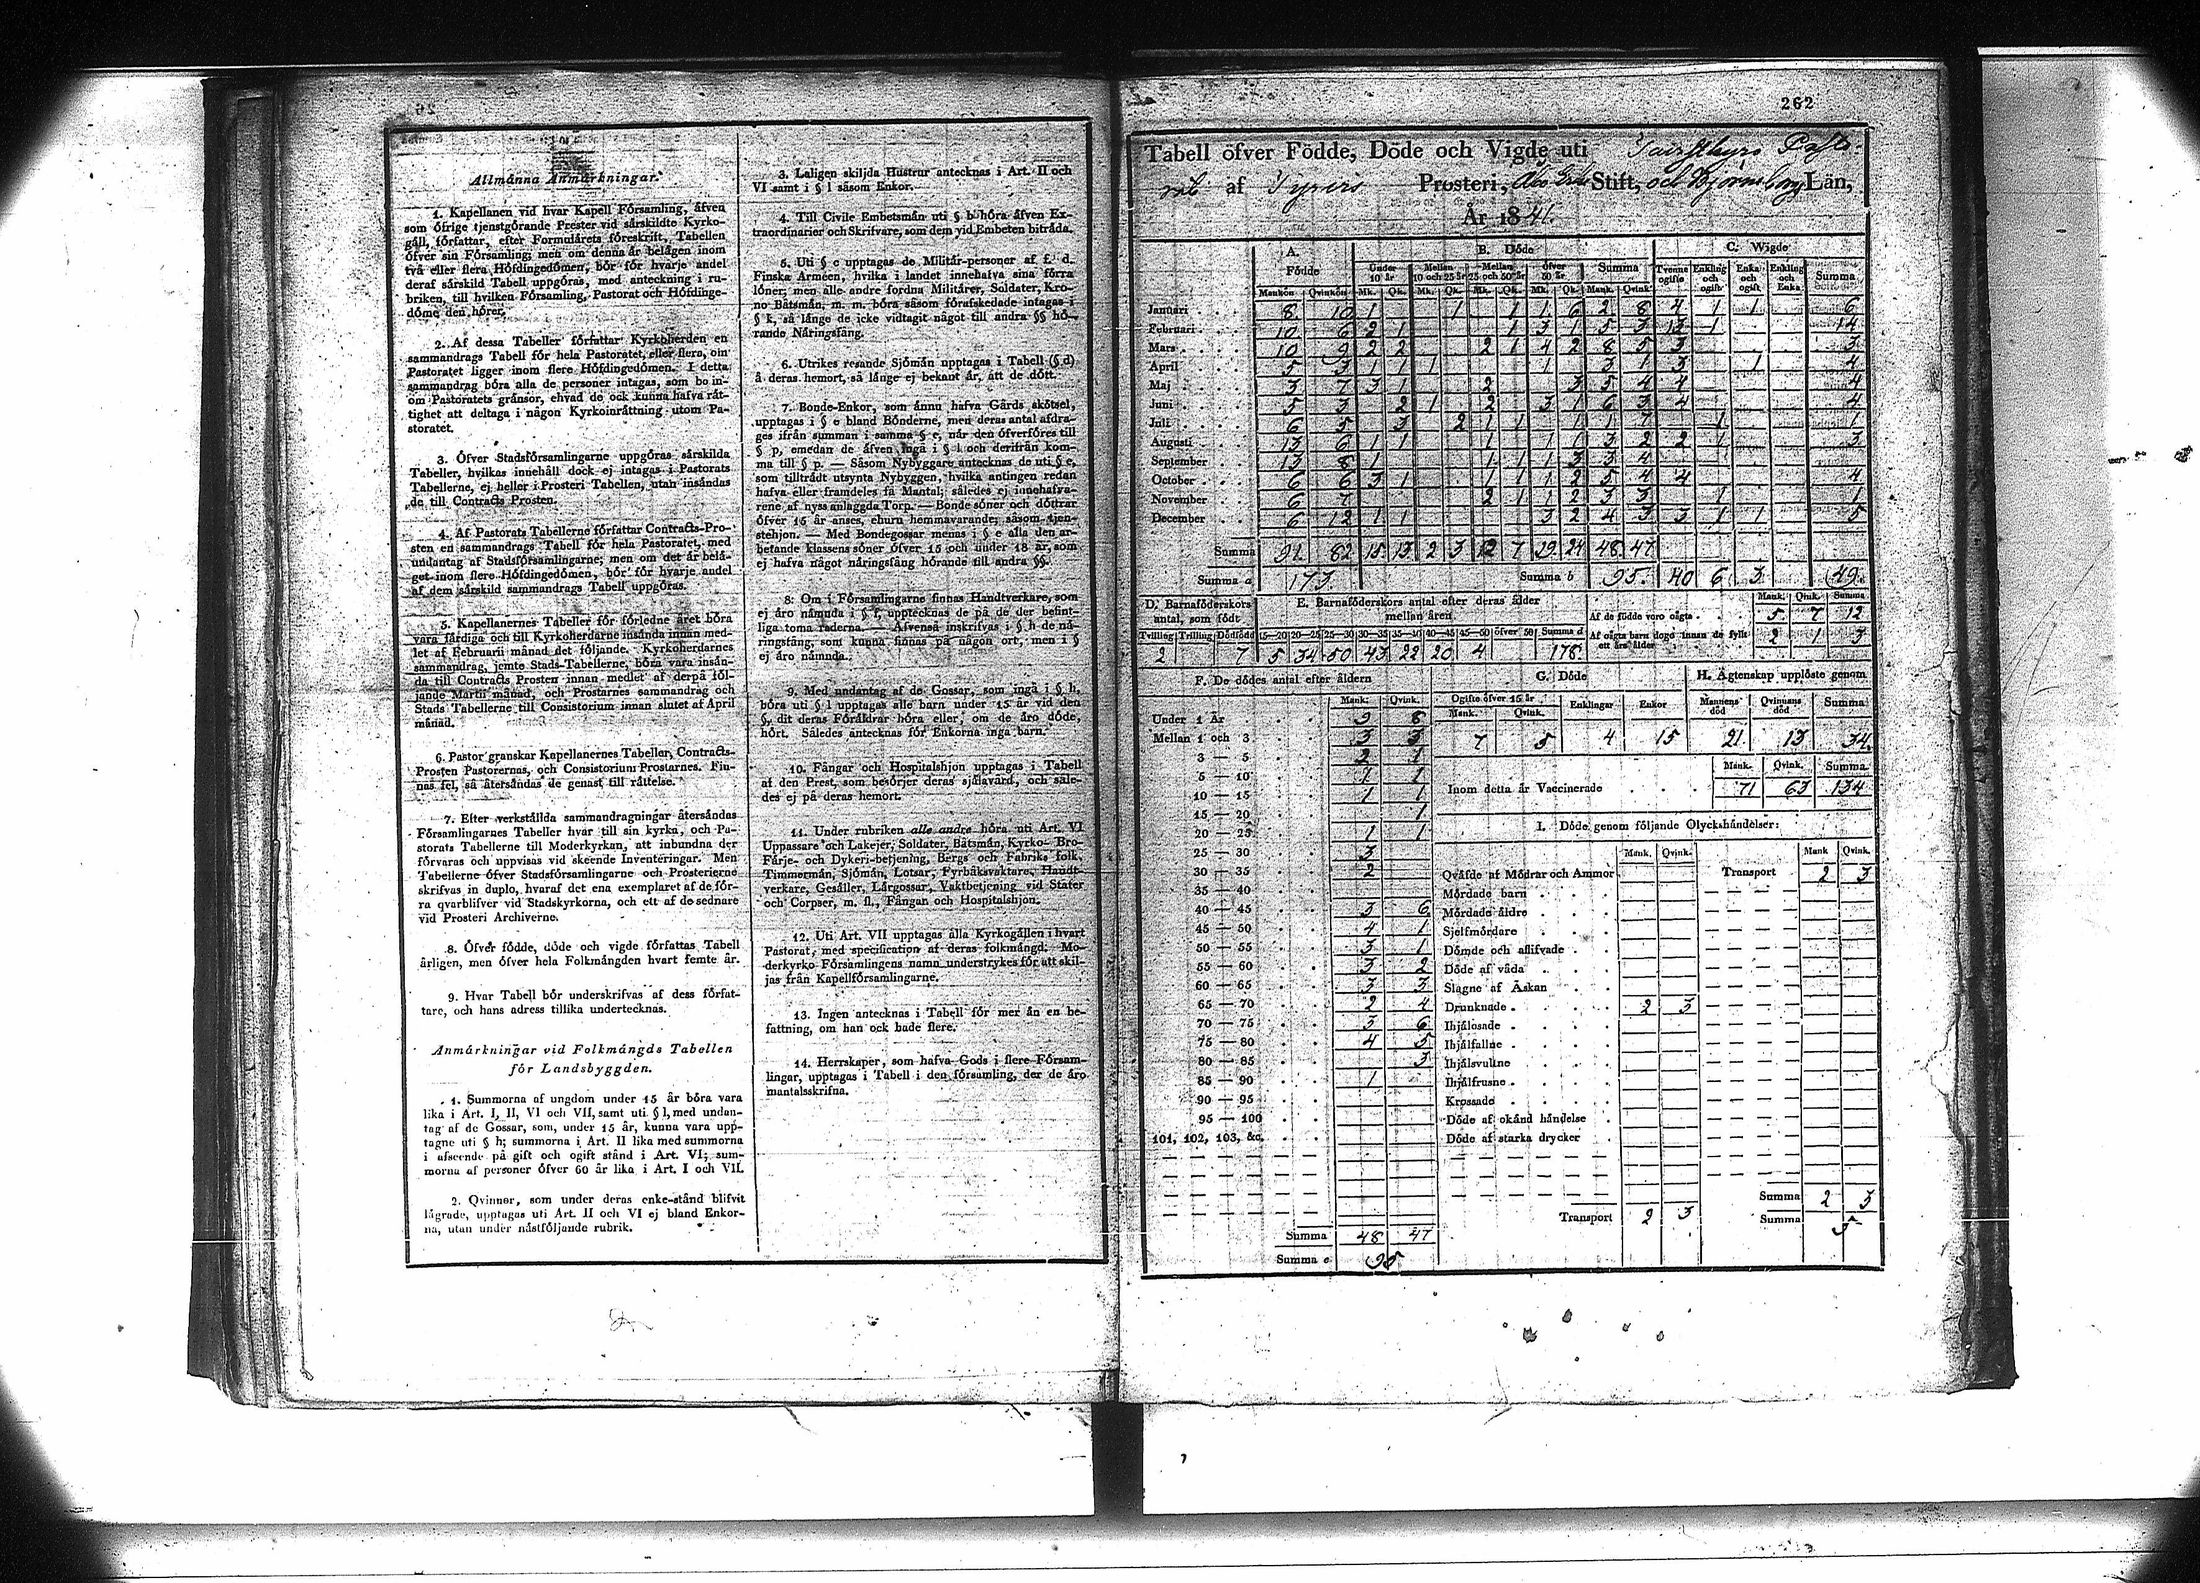 Allmänna Anmärkningar.
1. Kapellanen vid hvar Kapell Församling, äfven
som öfrige tjenstgörande Prester vid särskildte Kyrko-
gäll, författar, efter Formulärets föreskrift, Tabellen
öfver sin Församling; men om denna är belägen inom
två eller flera Höfdingedömen, bör för hvarje andel
deraf särskild Tabell uppgöras, med anteckning i ru-
briken, till hvilken Församling, Pastorat och Höfdinge-
döme den hörer.
2. Af dessa Tabeller författar Kyrkoherden en
sammandrags Tabell för hela Pastoratet, eller flera, om
Pastoratet ligger inom flere Höfdingedömen. I detta
sammandrag böra alla de personer intagas, som bo in-
om Pastoratets gränsor, ehvad de ock kunna hafva rät-
tighet att deltaga i någon Kyrkoinrättning utom Pa-
storatet.
3. Öfver Stadsförsamlingarne uppgöras särskilda
Tabeller, hvilkas innehåll dock ej intagas i Pastorats
Tabellerne, ej heller i Prosteri Tabellen, utan insändas
de till Contracts Prosten.
4. Af Pastorats Tabellerne författar Contracts-Pro-
sten en sammandrags Tabell för hela Pastoratet, med
undantag af Stadsförsamlingarne; men om det är belä-
get inom flere Höfdingedömen, bör för hvarje andel
af dem särskild sammandrags Tabell uppgöras.
5. Kapellanernes Tabeller för förledne året böra
vara färdiga och till Kyrkoherdarne insända innan med-
let af Februarii månad det följande. Kyrkoherdarnes
sammandrag, jemte Stads-Tabellerne, böra vara insän-
da till Contracts Prosten innan medlet af derpå föl-
jande Martii månad, och Prostarnes sammandrag och
Stads Tabellerne till Consistorium innan slutet af April
månad.
6. Pastor granskar Kapellanernes Tabeller, Contracts-
Prosten Pastorernas, och Consistorium Prostarnes. Fin-
nas fel, så återsändas de genast till rättelse.
7. Efter verkställda sammandragningar återsändas
Församlingarnes Tabeller hvar till sin kyrka, och Pa-
storats Tabellerne till Moderkyrkan, att inbundna der
förvaras och uppvisas vid skeende Inventeringar. Men
Tabellerne öfver Stadsförsamlingarne och Prosterierne
skrifvas in duplo, hvaraf det ena exemplaret af de för-
ra qvarblifver vid Stadskyrkorna, och ett af de sednare
vid Prosteri Archiverne.
8. Öfver födde, döde och vigde författas Tabell
årligen, men öfver hela Folkmängden hvart femte år.
9. Hvar Tabell bör underskrifvas af dess förfat-
tare, och hans adress tillika undertecknas.
Anmärkningar vid Folkmängds Tabellen
för Landsbyggden.
1. Summorna af ungdom under 15 år böra vara
lika i Art. I, II, VI och VII, samt uti § l, med undan-
tag af de Gossar, som, under 15 år, kunna vara upp-
tagne uti § h; summorna i Art. II lika med summorna
i afseende på gift och ogift stånd i Art. VI; sum-
morna af personer öfver 60 år lika i Art. I och VII.
2. Qvinnor, som under deras enke-stånd blifvit
lägrade, upptagas uti Art. II och VI ej bland Enkor-
na, utan under nästföljande rubrik.
3. Laligen skiljda Hustrur antecknas i Art. II och
VI samt i § l såsom Enkor.
4. Till Civile Embetsmän uti § b höra äfven Ex-
traordinarier och Skrifvare, som dem vid Embeten biträda.
5. Uti § c upptagas de Militär-personer af f. d.
Finska Armeen, hvilka i landet innehafva sina förra
löner; men alle andre fordna Militärer, Soldater, Kro-
no Båtsmän, m. m. böra såsom förafskedade intagas i
§ k, så länge de icke vidtagit något till andra §§ hö-
rande Näringsfång.
6. Utrikes resande Sjömän upptagas i Tabell (§ d)
å deras hemort, så länge ej bekant är, att de dött.
7. Bonde-Enkor, som ännu hafva Gårds skötsel,
upptagas i § e bland Bönderne, men deras antal afdra-
ges ifrån summan i samma § e, när den öfverföres till
§ p, emedan de äfven ingå i § l och derifrån kom-
ma till § p. — Såsom Nybyggare antecknas de uti § e,
som tillträdt utsynta Nybyggen, hvilka antingen redan
hafva eller framdeles få Mantal; således ej innehafva-
rene af nyss anlaggda Torp. — Bonde söner och döttrar
öfver 15 år anses, ehuru hemmavarande, såsom tjen-
stehjon. — Med Bondegossar menas i § e alla den ar-
betande klassens söner öfver 15 och under 18 år, som
ej hafva något näringsfång hörande till andra §§.
8. Om i Församlingarne finnas Handtverkare, som
ej äro nämnda i § f, upptecknas de på de der befint-
liga toma raderna. — Äfvenså inskrifvas i § h de nä-
ringsfång, som kunna finnas på någon ort, men i §
ej äro nämnda.
9. Med undantag af de Gossar, som ingå i § h,
böra uti § l upptagas alle barn under 15 år vid den
§, dit deras Föräldrar höra eller, om de äro döde,
hört. Således antecknas för Enkorna inga barn.
10. Fångar och Hospitalshjon upptagas i Tabell
af den Prest, som besörjer deras själavård, och såle-
des ej på deras hemort.
11. Under rubriken alle andre höra uti Art. VI
Uppassare och Lakejer, Soldater, Båtsmän, Kyrko- Bro-
Färje- och Dykeri-betjening, Bergs och Fabriks folk,
Timmermän, Sjömän, Lotsar, Fyrbåksvaktare, Handt-
verkare, Gesäller, Lärgossar, Vaktbetjening vid Stater
och Corpser, m. fl., Fångan och Hospitalshjon.
12. Uti Art. VII upptagas alla Kyrkogällen i hvart
Pastorat, med specification af deras folkmängd. Mo-
derkyrko-Församlingens namn understrykes för att skil-
jas från Kapellförsamlingarne.
13. Ingen antecknas i Tabell för mer än en be-
fattning, om han ock hade flere.
14. Herrskaper, som hafva Gods i flere Försam-
lingar, upptagas i Tabell i den församling, der de äro
mantalsskrifna.
262
Tabell öfver Födde, Döde och Vigde uti Pasto-
rat af Tyrvis Prosteri, Åbo Erke Stift, och Björneborgs Län,
År 1841.
A. Födde B. Döde C. Wigde
Under 10 år Mellan 10 och 25 år Mellan 25 och 50 år Öfver 50 år Summa Tvenne ogifte Enkling och ogift Enka och ogift Enkling och Enka Summa
Mankön Qvinkön Mk. Qk. Mk. Qk. Mk. Qk. Mk. Qk. Mank. Qvink.
Januari 8 10 1 1 1 1 6 2 8 4 1 1 6
Februari 10 6 2 1 1 3 1 5 3 13 1 14
Mars 10 9 2 2 2 1 4 2 8 5 3 3
April 5 3 1 1 1 1 3 1 3 1 4
Maj 3 7 3 1 2 3 5 4 4 4
Juni 5 3 2 1 2 3 1 6 3 4 4
Juli 6 5 3 2 1 1 1 1 7 1 1
Augusti 13 6 1 1 1 1 1 3 2 2 1 3
September 13 8 1 1 1 1 3 3 4
October 6 6 3 1 1 1 1 2 5 4 4 4
November 6 7 2 1 1 2 3 3 1 1
December 6 12 1 1 3 2 4 3 3 1 1 5
Summa 91 82 15 13 2 3 12 7 19 24 48 47
Summa a 173. Summa b 95. 40 6 3 49.
D. Barnaföderskors antal, som födt E. Barnaföderskors antal efter deras ålder mellan åren
Mank. Qvink. Summa
Af de födde voro oägta 5 7 12
Tvilling Trilling Dödfödd 15—20 20—25 25—30 30—35 35—40 40—45 45—50 öfver 50 Summa d
Af oägta barn dogo innan de fyllt ett års ålder 2 1 3
2 7 5 34 50 43 22 20 4 178.
F. De dödes antal efter åldern
Mank. Qvink.
Under 1 År 9 8
Mellan 1 och 3 3 3
3 — 5 2 1
5 — 10 1 1
10 — 15 1 1
15 — 20 1
20 — 25 1 1
25 — 30 3
30 — 35 2
35 — 40
40 — 45 3 6
45 — 50 4 1
50 — 55 3 1
55 — 60 3 2
60 — 65 3 3
65 — 70 2 4
70 — 75 3 6
75 — 80 4 5
80 — 85 3
85 — 90 1
90 — 95
95 — 100
101, 102, 103, &c.
Summa 48 47
Summa e 95
G. Döde
Ogifte öfver 15 år Enklingar Enkor
Mank. Qvink.
7 5 4 15
H. Ägtenskap upplöste genom
Mannens död Qvinnans död Summa
21 13 34
Mank. Qvink. Summa
Inom detta år Vaccinerade 71 63 134
I. Döde genom följande Olyckshändelser:
Mank. Qvink. Mank Qvink.
Qväfde af Mödrar och Ammor Transport 2 3
Mördade barn
Mördade äldre
Sjelfmördare
Dömde och aflifvade
Döde af våda
Slagne af Åskan
Drunknade 2 3
Ihjälösade
Ihjälfallne
Ihjälsvultne
Ihjälfrusne
Krossade
Döde af okänd händelse
Döde af starka drycker
Summa 2 3
Transport 2 3 Summa 5